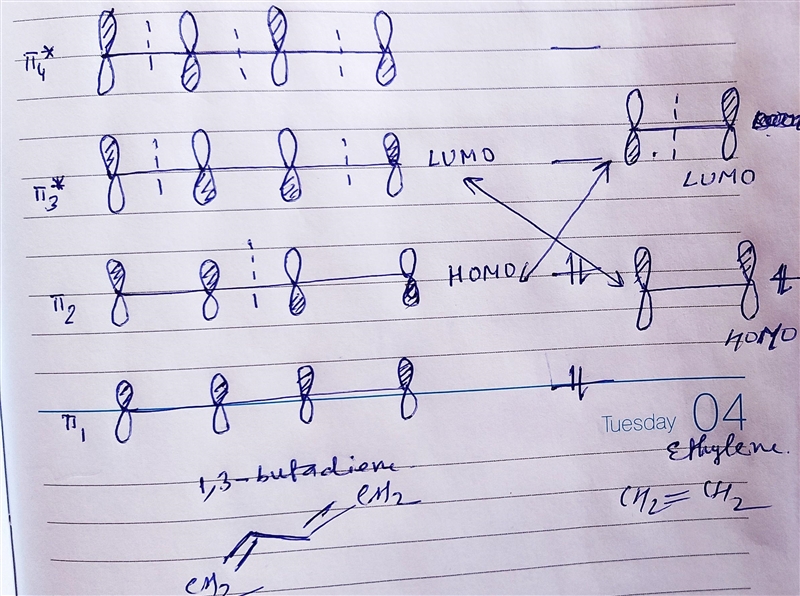 π4*
π3* LUMO
LUMO
π2 HOMO
HOMO
π1
Tuesday 04
Ethylene.
1,3-butadiene.
CH2
CH2=CH2
CH2